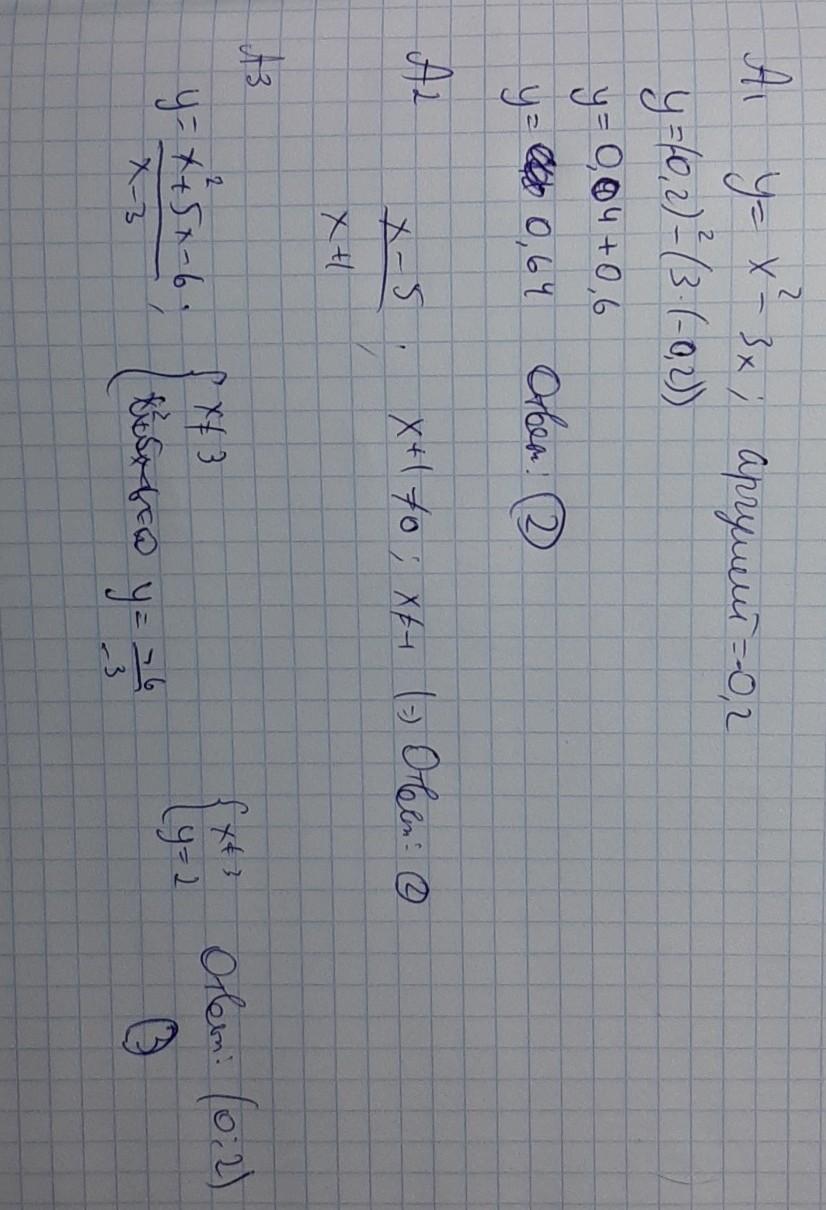 А1 y = x² - 3x; аргумент = -0,2
y = (0,2)² - (3·(-0,2))
y = 0,04 + 0,6
y = 0,64 Ответ: 2
А2 x - 5 / x + 1 ; x + 1 ≠ 0; x ≠ -1 (=> Ответ: 2
А3
y = x² + 5x - 6 / x - 3 ; { x ≠ 3 y = -6 / -3 { x ≠ 3 y = 2 Ответ: (0; 2)
3